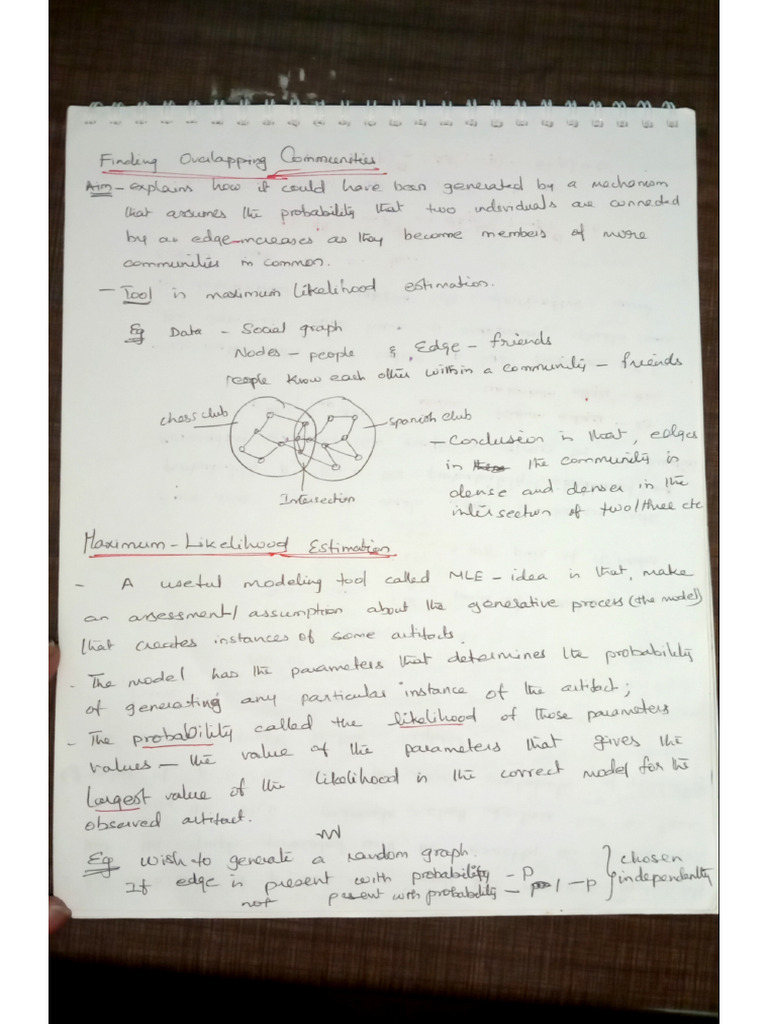 Finding Overlapping Communities
Aim - explains how it could have been generated by a mechanism
that assumes the probability that two individuals are connected
by an edge increases as they become members of more
communities in common.
- Tool is maximum likelihood estimation.
Eg Data - Social graph
Nodes - people & Edge - friends
People know each other within a community - friends
chess club
spanish club
Intersection
- Conclusion is that, edges
in the community is
dense and denser in the
intersection of two/three etc
Maximum - Likelihood Estimation
- A useful modeling tool called MLE - idea is that, make
an assessment/assumption about the generative process (the model)
that creates instances of some artifacts.
- The model has the parameters that determines the probability
of generating any particular instance of the artifact;
- The probability called the likelihood of those parameters
values - the value of the parameters that gives the
largest value of the likelihood is the correct model for the
observed artifact.
Eg wish to generate a random graph.
If edge is present with probability - p
not present with probability - 1-p
chosen
independently